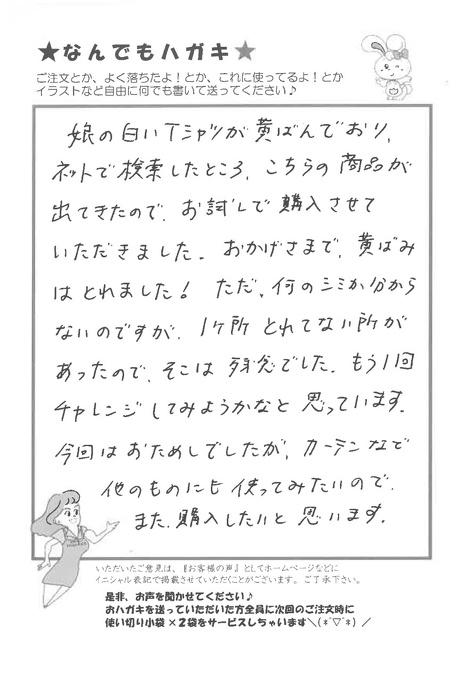 ★なんでもハガキ★
ご注文とか、よく落ちたよ！とか、これに使ってるよ！とか
イラストなど自由に何でも書いて送ってください♪
娘の白いTシャツが黄ばんでおり、
ネットで検索したところ、こちらの商品が
出てきたので、お試しで購入させて
いただきました。おかげさまで、黄ばみ
はとれました！ ただ、何のシミか分から
ないのですが、1ヶ所とれてない所が
あったので、そこは残念でした。もう1回
チャレンジしてみようかなと思っています。
今回はおためしでしたが、カーテンなで
他のものにも使ってみたいので、
また、購入したいと思います。
いただいたご意見は、『お客様の声』としてホームページなどに
イニシャル表記で掲載させていただくことがございます。ご了承下さい。
是非、お声を聞かせてください♪
おハガキを送っていただいた方全員に次回のご注文時に
使い切り小袋×2袋をサービスしちゃいます＼(*ﾟ▽ﾟ*)／